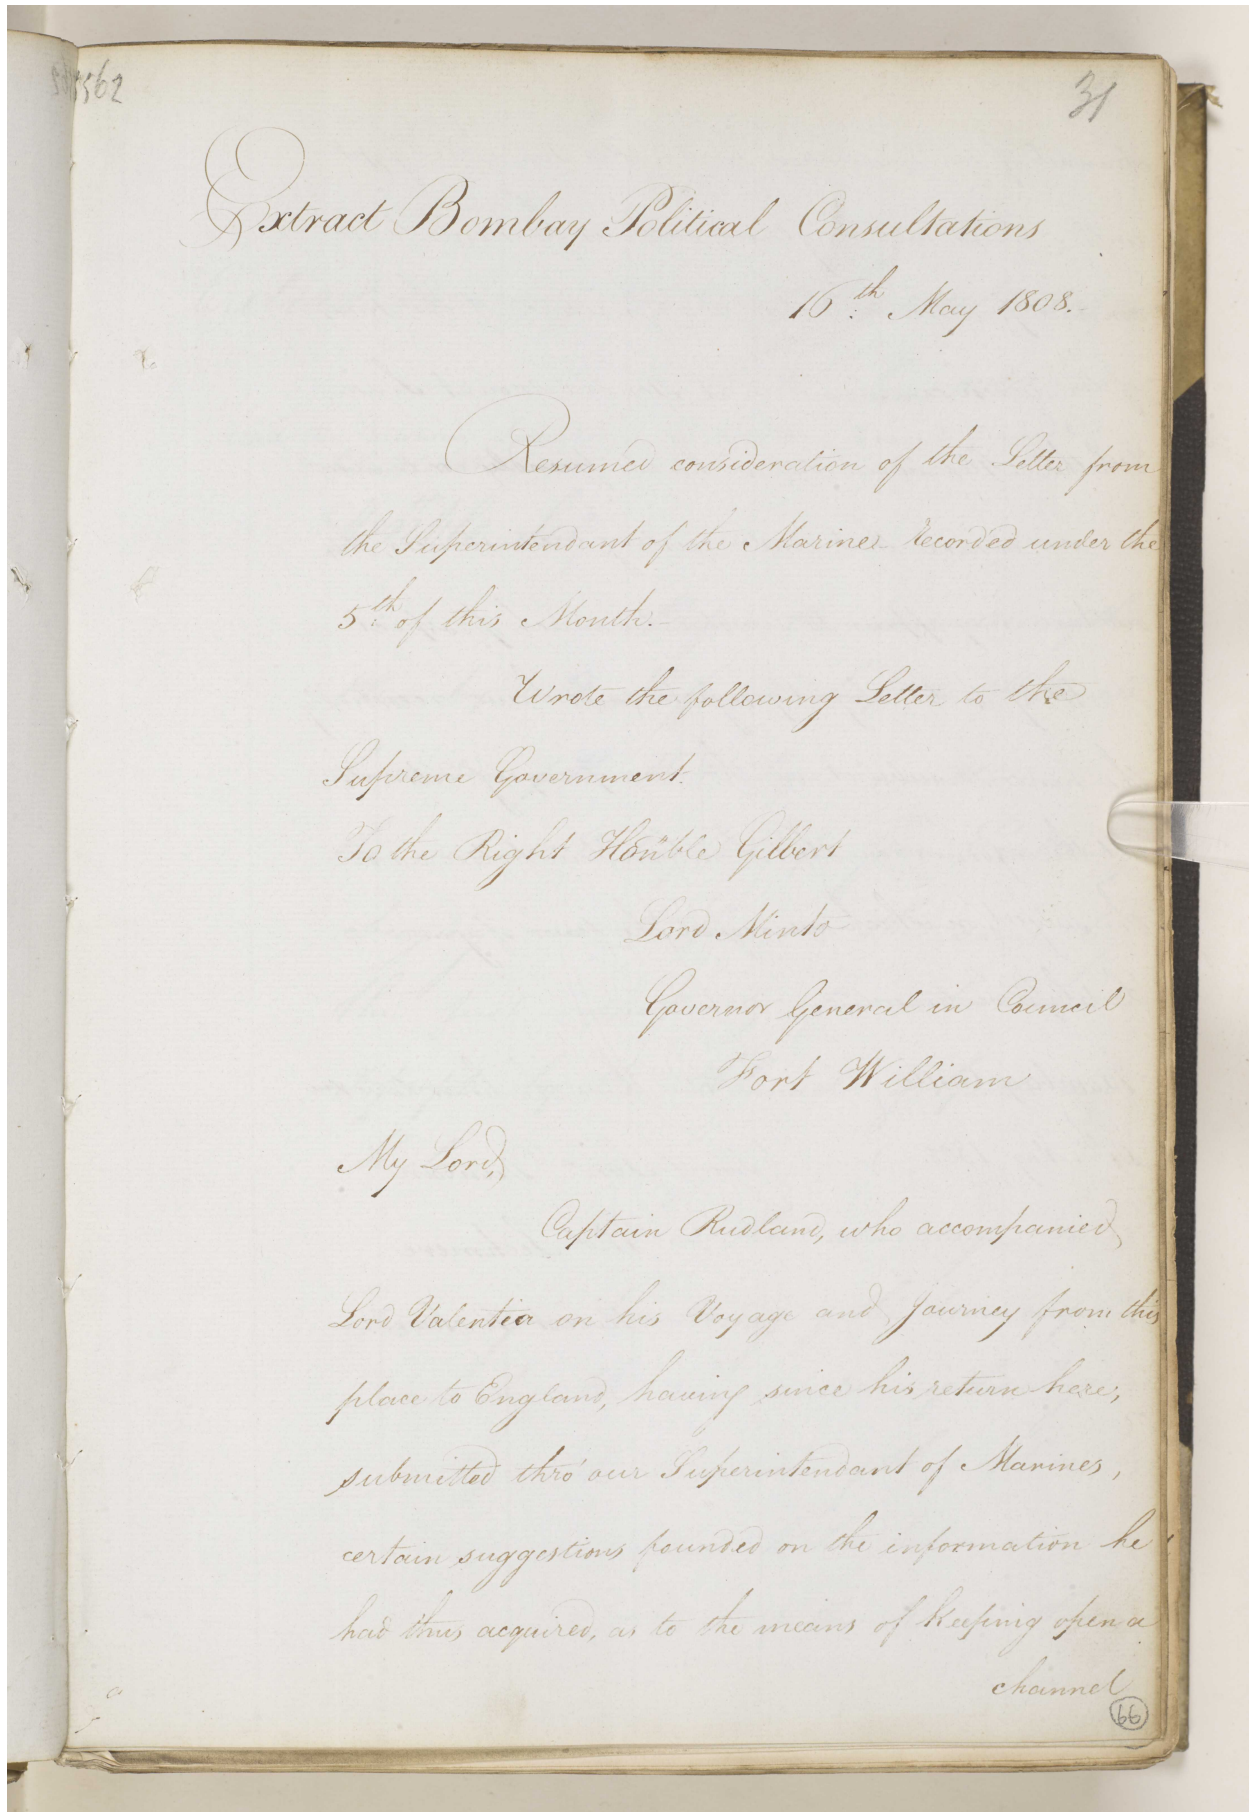 5562
31
Extract Bombay Political Consultations
16th May 1808.
Resumed consideration of the Letter from
the Superintendant of the Marine recorded under the
5th of this Month.
Wrote the following Letter to the
Supreme Government.
To the Right Honble Gilbert
Lord Minto
Governor General in Council
Fort William
My Lord,
Captain Rudland, who accompanied
Lord Valentia on his Voyage and Journey from this
place to England, having since his return here,
submitted thro' our Superintendant of Marines,
certain suggestions founded on the information he
had thus acquired, as to the means of keeping open a
channel
66